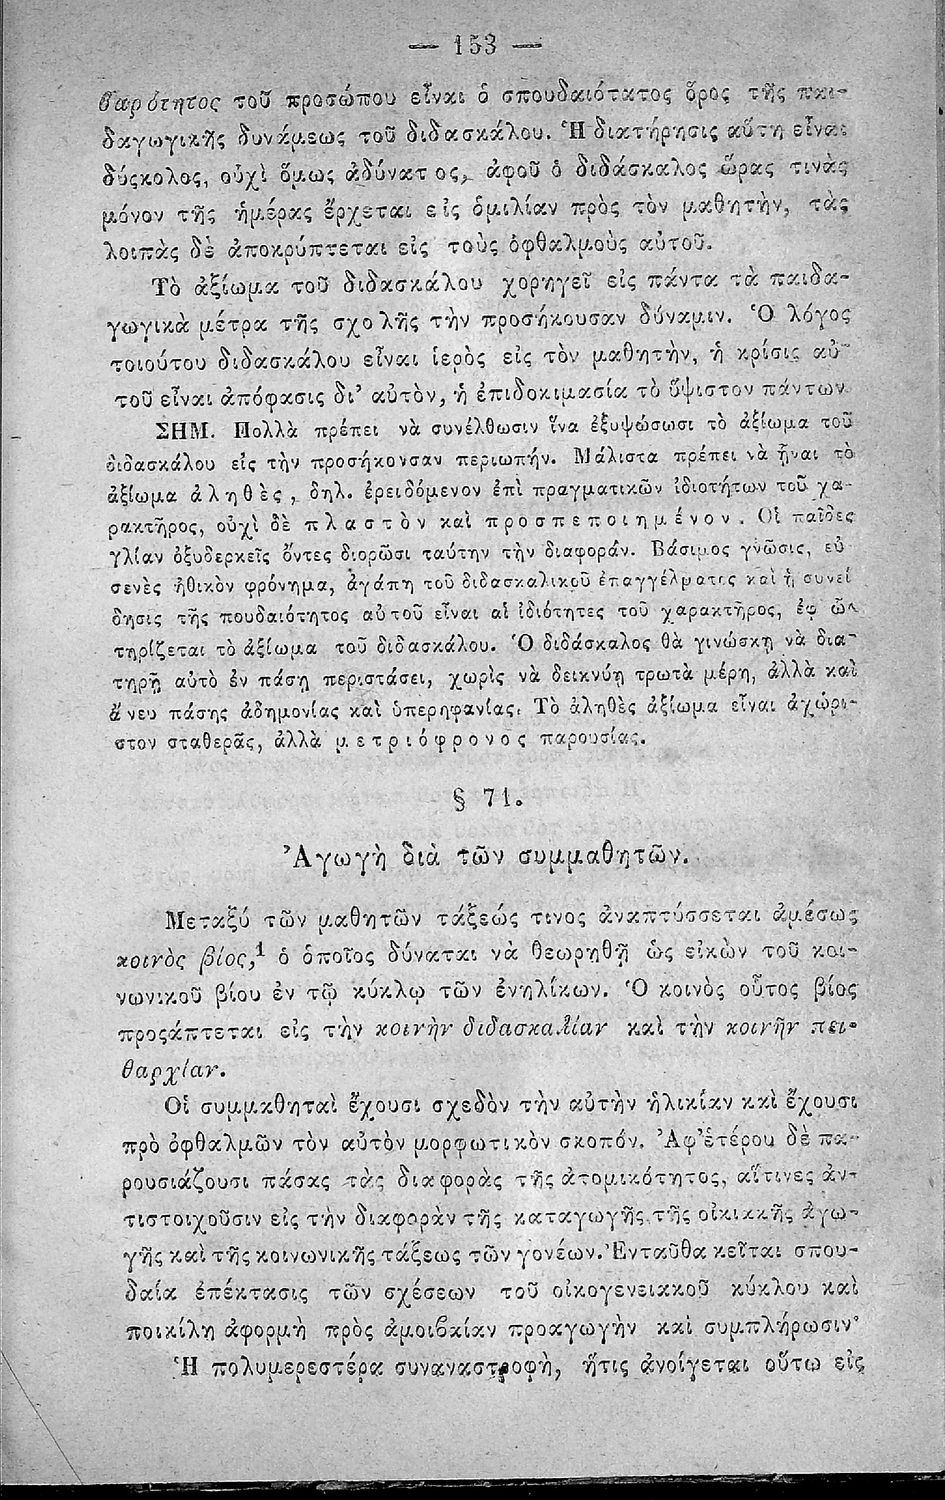 — 153 —
βαρύτητος τοῦ προσώπου εἶναι ὁ σπουδαιότατος ὅρος τῆς παι-
δαγωγικῆς δυνάμεως τοῦ διδασκάλου. Ἡ διατήρησις αὕτη εἶναι
δύσκολος, οὐχὶ ὅμως ἀδύνατος, ἀφοῦ ὁ διδάσκαλος ὥρας τινὰς
μόνον τῆς ἡμέρας ἔρχεται εἰς ὁμιλίαν πρὸς τὸν μαθητὴν, τὰς
λοιπὰς δὲ ἀποκρύπτεται εἰς τοὺς ὀφθαλμοὺς αὐτοῦ.
Τὸ ἀξίωμα τοῦ διδασκάλου χορηγεῖ εἰς πάντα τὰ παιδα-
γωγικὰ μέτρα τῆς σχολῆς τὴν προσήκουσαν δύναμιν. Ὁ λόγος
τοιούτου διδασκάλου εἶναι ἱερὸς εἰς τὸν μαθητὴν, ἡ κρίσις αὐ-
τοῦ εἶναι ἀπόφασις δι' αὐτὸν, ἡ ἐπιδοκιμασία τὸ ὕψιστον πάντων
ΣΗΜ. Πολλὰ πρέπει νὰ συνέλθωσιν ἵνα ἐξυψώσωσι τὸ ἀξίωμα τοῦ
διδασκάλου εἰς τὴν προσήκουσαν περιωπήν. Μάλιστα πρέπει νὰ ᾖναι τὸ
ἀξίωμα ἀληθὲς, δηλ. ἐρειδόμενον ἐπὶ πραγματικῶν ἰδιοτήτων τοῦ χα-
ρακτῆρος, οὐχὶ δὲ πλαστὸν καὶ προσπεποιημένον. Οἱ παῖδες
γλίαν ὀξυδερκεῖς ὄντες διορῶσι ταύτην τὴν διαφοράν. Βάσιμος γνῶσις, εὐ
σενὲς ἠθικὸν φρόνημα, ἀγάπη τοῦ διδασκαλικοῦ ἐπαγγέλματος καὶ ἡ συνεί
δησις τῆς πουδαιότητος αὐτοῦ εἶναι αἱ ἰδιότητες τοῦ χαρακτῆρος, ἐφ ὧν
τηρίζεται τὸ ἀξίωμα τοῦ διδασκάλου. Ὁ διδάσκαλος θὰ γινώσκῃ νὰ δια-
τηρῇ αὐτὸ ἐν πάσῃ περιστάσει, χωρὶς νὰ δεικνύῃ τρωτὰ μέρη, ἀλλὰ καὶ
ἄνευ πάσης ἀδημονίας καὶ ὑπερηφανίας. Τὸ ἀληθὲς ἀξίωμα εἶναι ἀχώρι-
στον σταθερᾶς, ἀλλὰ μετριόφρονος παρουσίας.
§ 71.
Ἀγωγὴ διὰ τῶν συμμαθητῶν.
Μεταξύ τῶν μαθητῶν τάξεώς τινος ἀναπτύσσεται ἀμέσως
κοινὸς βίος,¹ ὁ ὁποῖος δύναται νὰ θεωρηθῇ ὡς εἰκὼν τοῦ κοι-
νωνικοῦ βίου ἐν τῷ κύκλῳ τῶν ἐνηλίκων. Ὁ κοινὸς οὗτος βίος
προςάπτεται εἰς τὴν κοινὴν διδασκαλίαν καὶ τὴν κοινὴν πει-
θαρχίαν.
Οἱ συμμαθηταὶ ἔχουσι σχεδὸν τὴν αὐτὴν ἡλικίαν καὶ ἔχουσι
πρὸ ὀφθαλμῶν τὸν αὐτὸν μορφωτικὸν σκοπόν. Ἀφ'ἑτέρου δὲ πα-
ρουσιάζουσι πάσας τὰς διαφορὰς τῆς ἀτομικότητος, αἵτινες ἀν-
τιστοιχοῦσιν εἰς τὴν διαφορὰν τῆς καταγωγῆς τῆς οἰκιακῆς ἀγω-
γῆς καὶ τῆς κοινωνικῆς τάξεως τῶν γονέων. Ἐνταῦθα κεῖται σπου-
δαία ἐπέκτασις τῶν σχέσεων τοῦ οἰκογενειακοῦ κύκλου καὶ
ποικίλη ἀφορμὴ πρὸς ἀμοιβαίαν προαγωγὴν καὶ συμπλήρωσιν·
Ἡ πολυμερεστέρα συναναστροφὴ, ἥτις ἀνοίγεται οὕτω εἰς